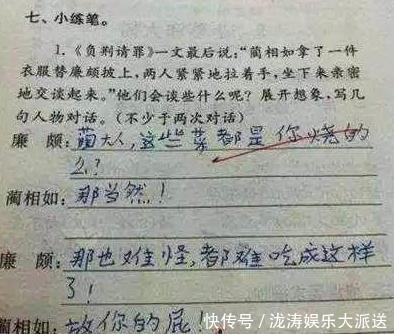 七、小练笔。
1.《负荆请罪》一文最后说:“蔺相如拿了一件
衣服替廉颇披上,两人紧紧地拉着手,坐下来亲密
地交谈起来。”他们会谈些什么呢?展开想象,写几
句人物对话。(不少于两次对话)
廉 颇:蔺大人,这些菜都是你烧的
么?
蔺相如:那当然!
廉 颇:那也难怪,都难吃成这样
了!
蔺相如:放你的屁!
快传号/泷涛娱乐大派送